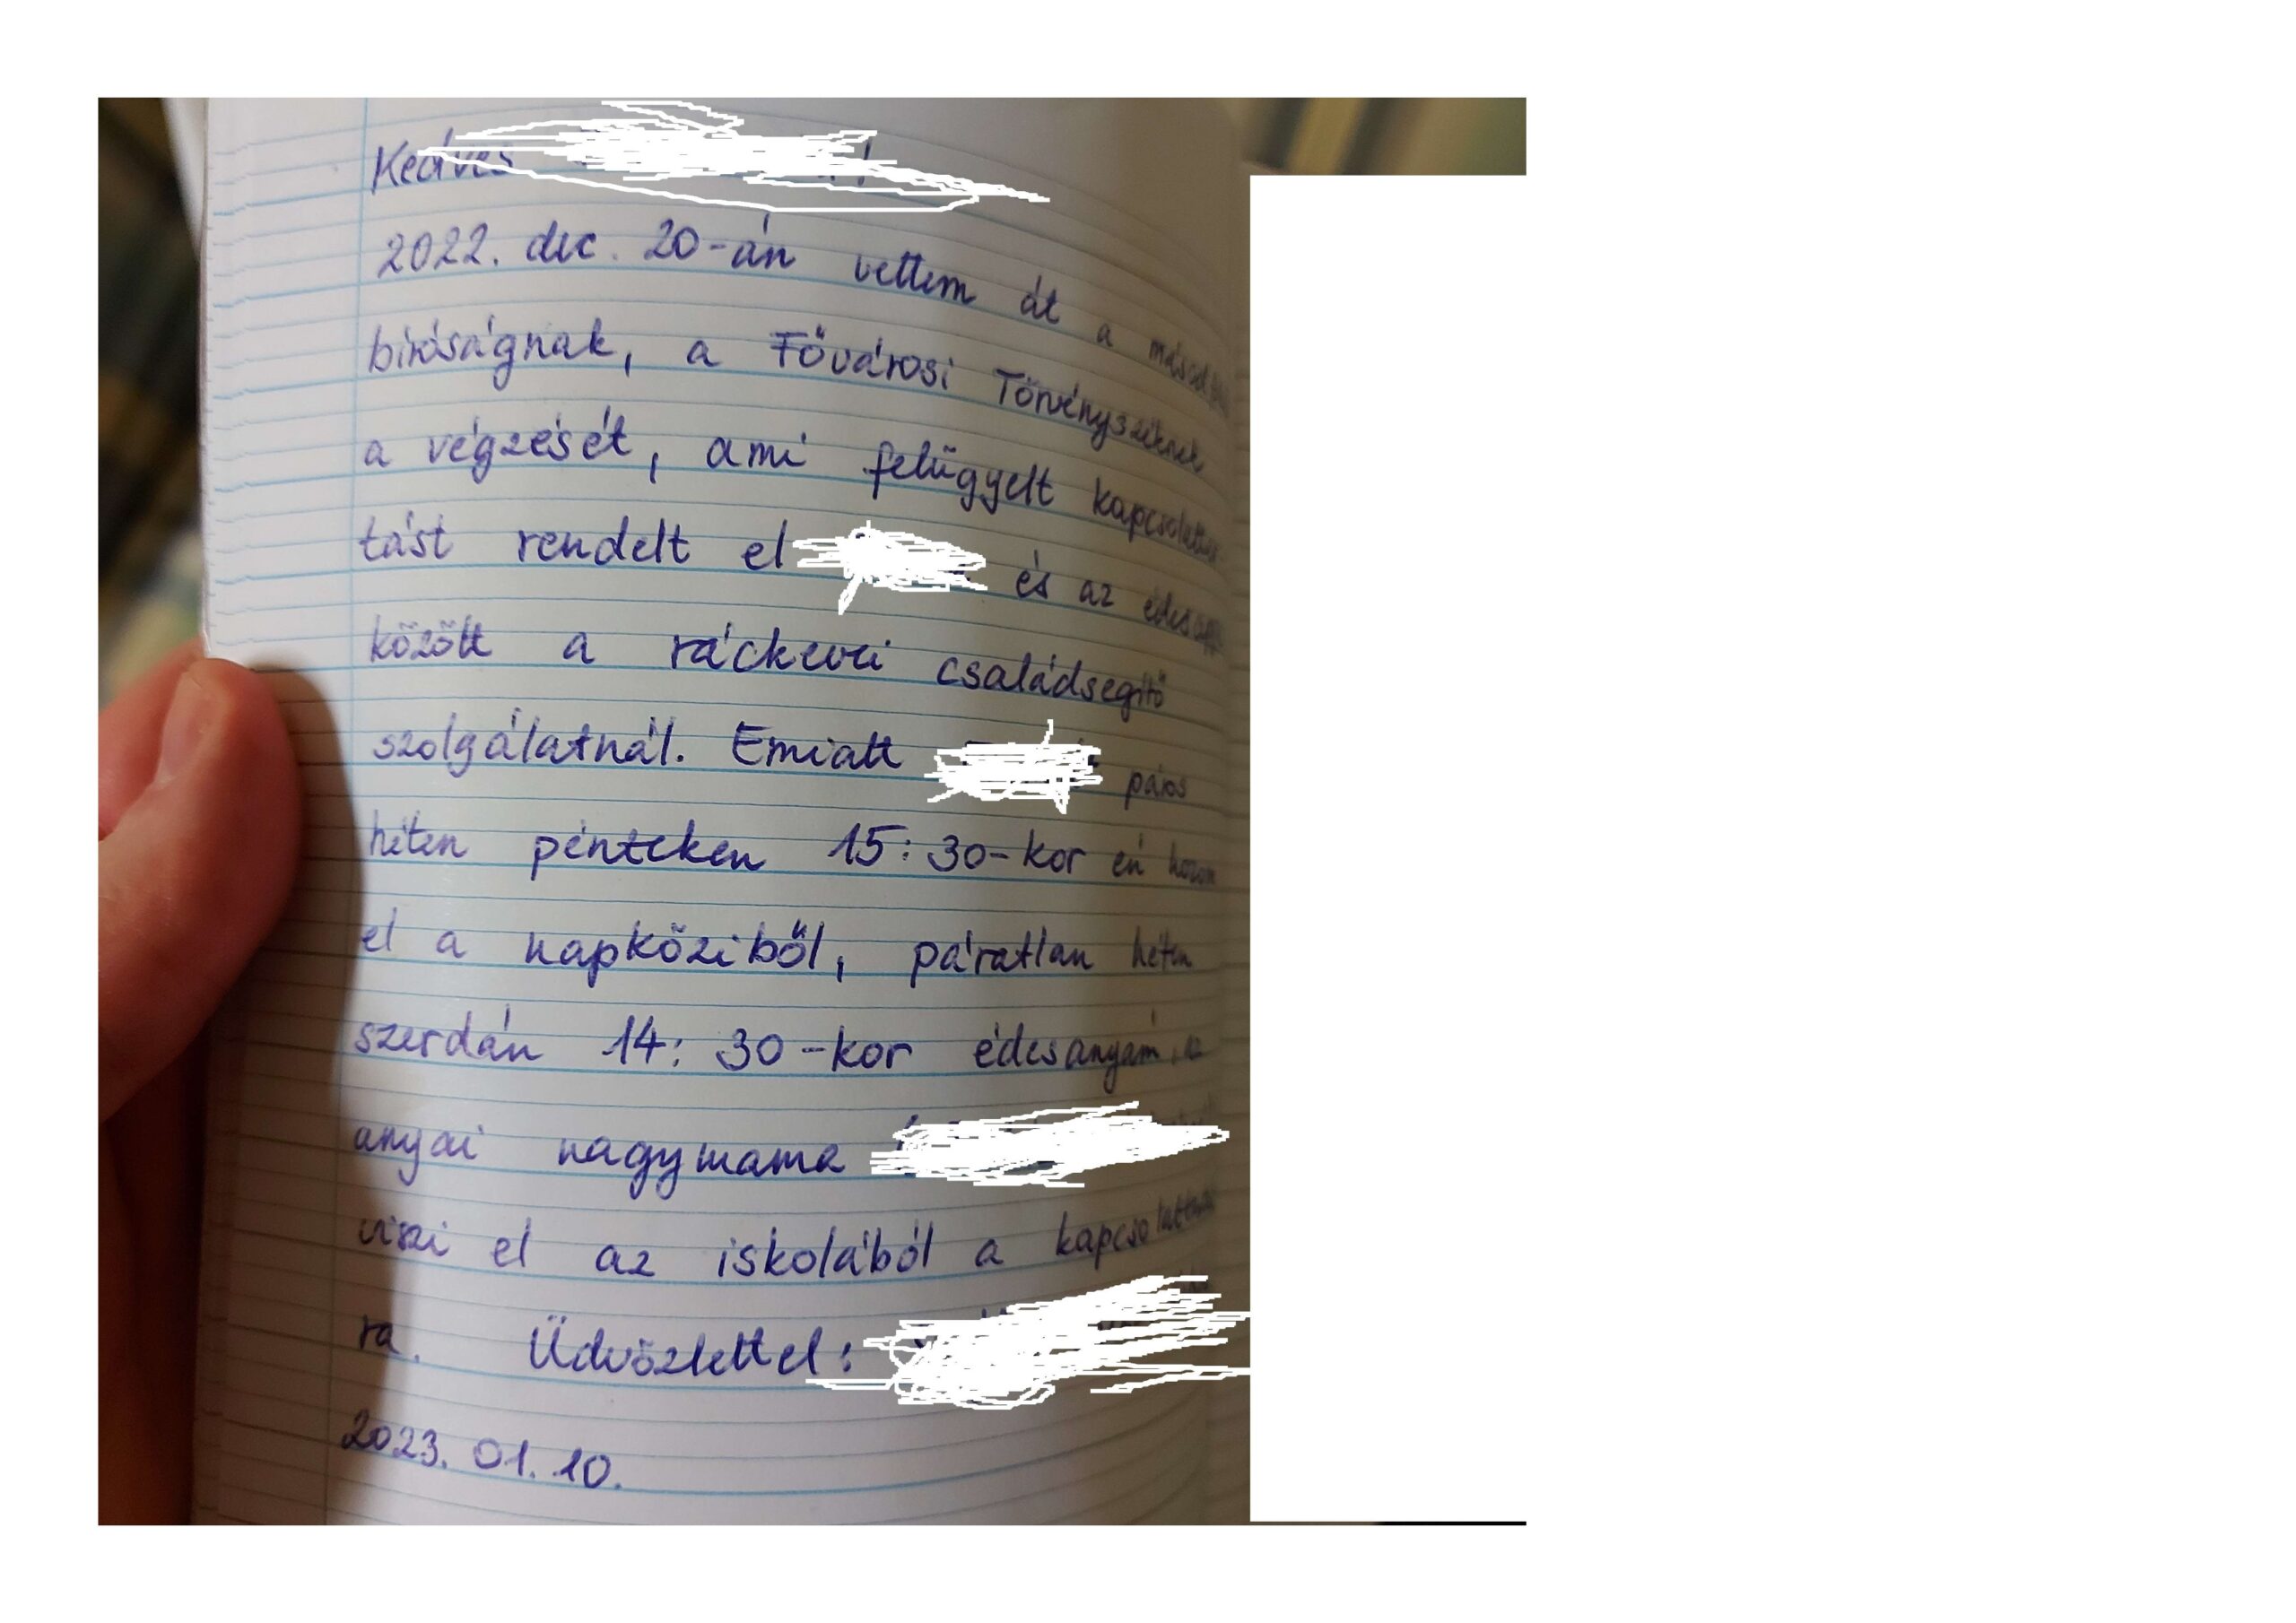 Kedves !
2022. dec. 20-án vettem át a
bíróságnak, a Fővárosi Törvényszéknek
a végzését, ami felügyelt kapcsolattar-
tást rendelt el és az
között a ráckevei családsegítő
szolgálatnál. Emiatt páros
héten pénteken 15:30-kor én hozom
el a napköziből, páratlan héten
szerdán 14:30-kor édesanyám, az
anyai nagymama
viszi el az iskolából a
ra. Üdvözlettel:
2023. 01. 10.